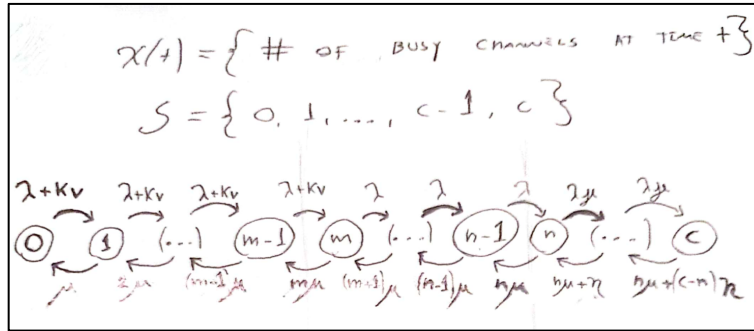 X(t) = { # OF BUSY CHANNELS AT TIME t }
S = { 0, 1, ..., c-1, c }
λ+Kν λ+Kν λ+Kν λ+Kν λ λ λ λ λ
0 1 (...) m-1 m (...) n-1 n (...) c
μ 2μ (m-1)μ mμ (m+1)μ (n-1)μ nμ nμ+η nμ+(c-n)η